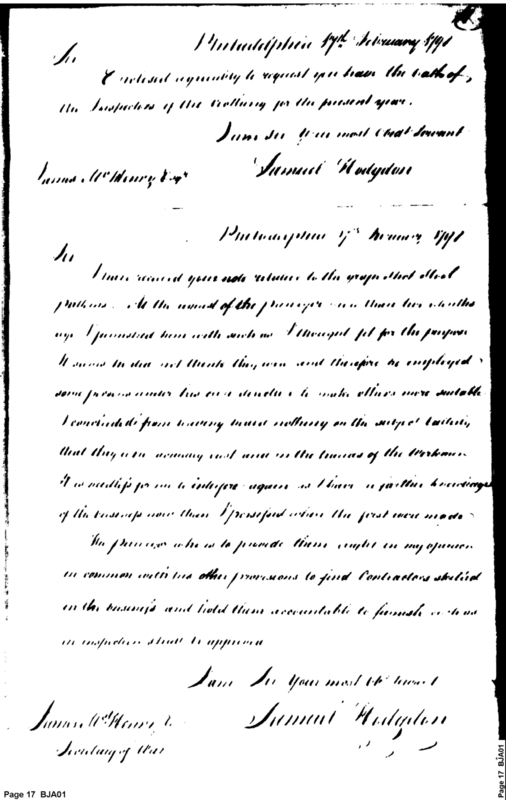 Philadelphia 17th February 1798
Sir
Enclosed agreeably to request you have the oath of,
the Inspectors of the Clothing for the present year.
I am Sir Your most Obedt Servant
James McHenry Esqr Samuel Hodgdon
Philadelphia 17th 1798
Sir
I have received your note relative to the grape shot
patterns. At the of the than two months
ago I furnished him with such as I thought fit for the purpose
It seems he did not think they were and therefore he employed
some persons under his own to make others more suitable
I concluded from having heard nothing on the subject lately
that they were cast and in the hands of the Workmen
It is needless for me to interfere again as I have no farther knowledge
of the business now than I possessed when the first were made
The who is to provide them ought in my opinion
in common with his other provisions to find Contractors skilled
in the business and hold them accountable to furnish such as
on inspection shall be approved
I am Sir Your most Obt Servant
James McHenry E Samuel Hodgdon
Secretary of War
Page 17 BJA01
Page 17 BJA01